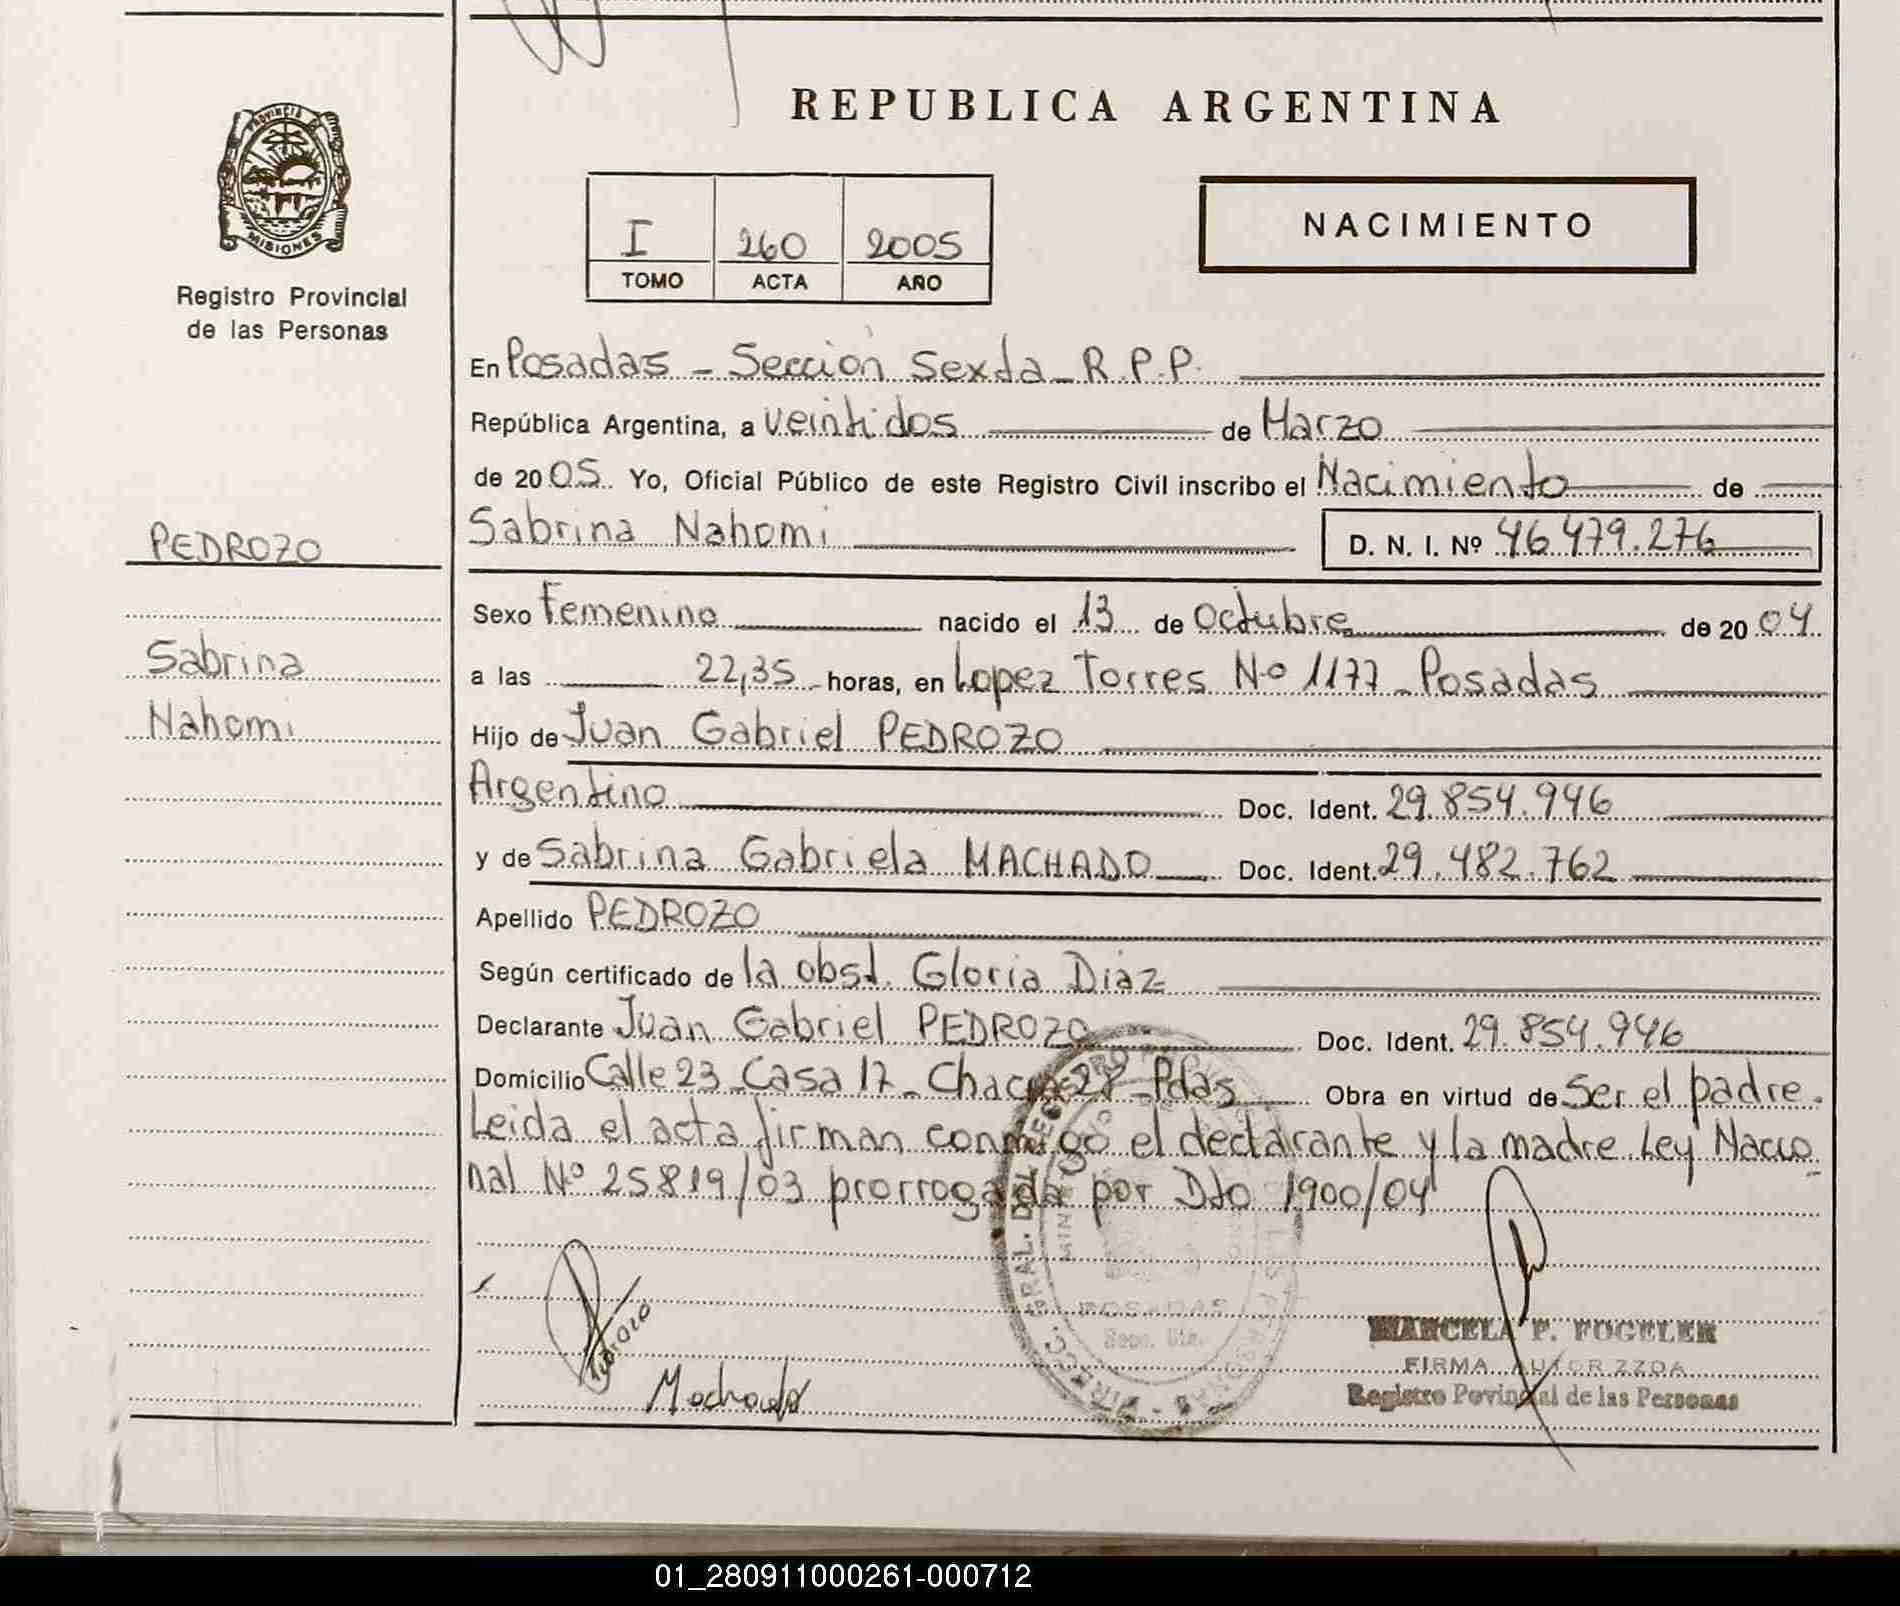 REPUBLICA ARGENTINA
PROVINCIA DE
MISIONES
Registro Provincial
de las Personas
I 260 2005
TOMO ACTA AÑO
NACIMIENTO
En Posadas - Sección Sexta - R.P.P.
República Argentina, a veintidos de Marzo
de 2005. Yo, Oficial Público de este Registro Civil inscribo el Nacimiento de
PEDROZO
Sabrina Nahomi D. N. I. Nº 46 479.276
Sexo Femenino nacido el 13 de Octubre de 2004
Sabrina
a las 22,35 horas, en Lopez Torres Nº 1177 - Posadas
Nahomi
Hijo de Juan Gabriel PEDROZO
Argentino Doc. Ident. 29.854.946
y de Sabrina Gabriela MACHADO Doc. Ident. 29.482.762
Apellido PEDROZO
Según certificado de la obst. Gloria Diaz
Declarante Juan Gabriel PEDROZO Doc. Ident. 29.854.946
Domicilio Calle 23 - Casa 17 - Chacra 28 - Pdas Obra en virtud de Ser el padre.
Leida el acta firman conmigo el declarante y la madre Ley Nacio
nal Nº 25819/03 prorrogada por Dto 1900/04
Pedrozo
Machado
POSADAS
MARCELA P. FOGELER
FIRMA AUTORIZZDA
Registro Povincial de las Personas
01_280911000261-000712